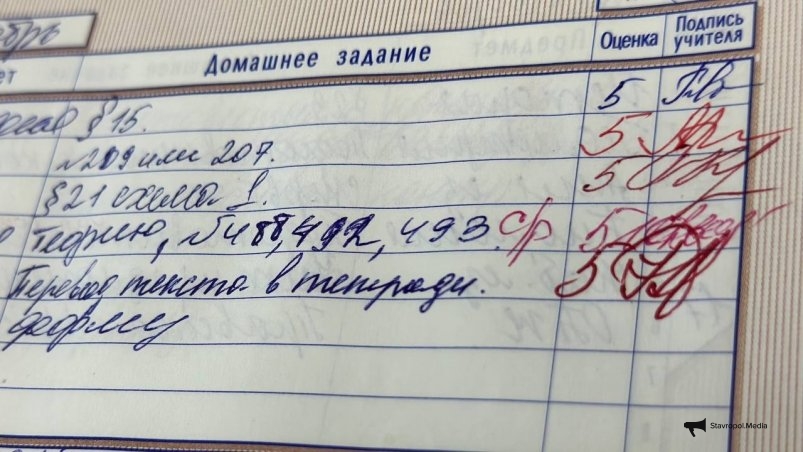 ет Домашнее задание Оценка Подпись учителя
§ 15. 5
№209 или 207. 5
§21 схема 1. 5
теорию, №488, 492, 493. с/р 5
Перевод текста в тетради. 5
форму
Stavropol.Media